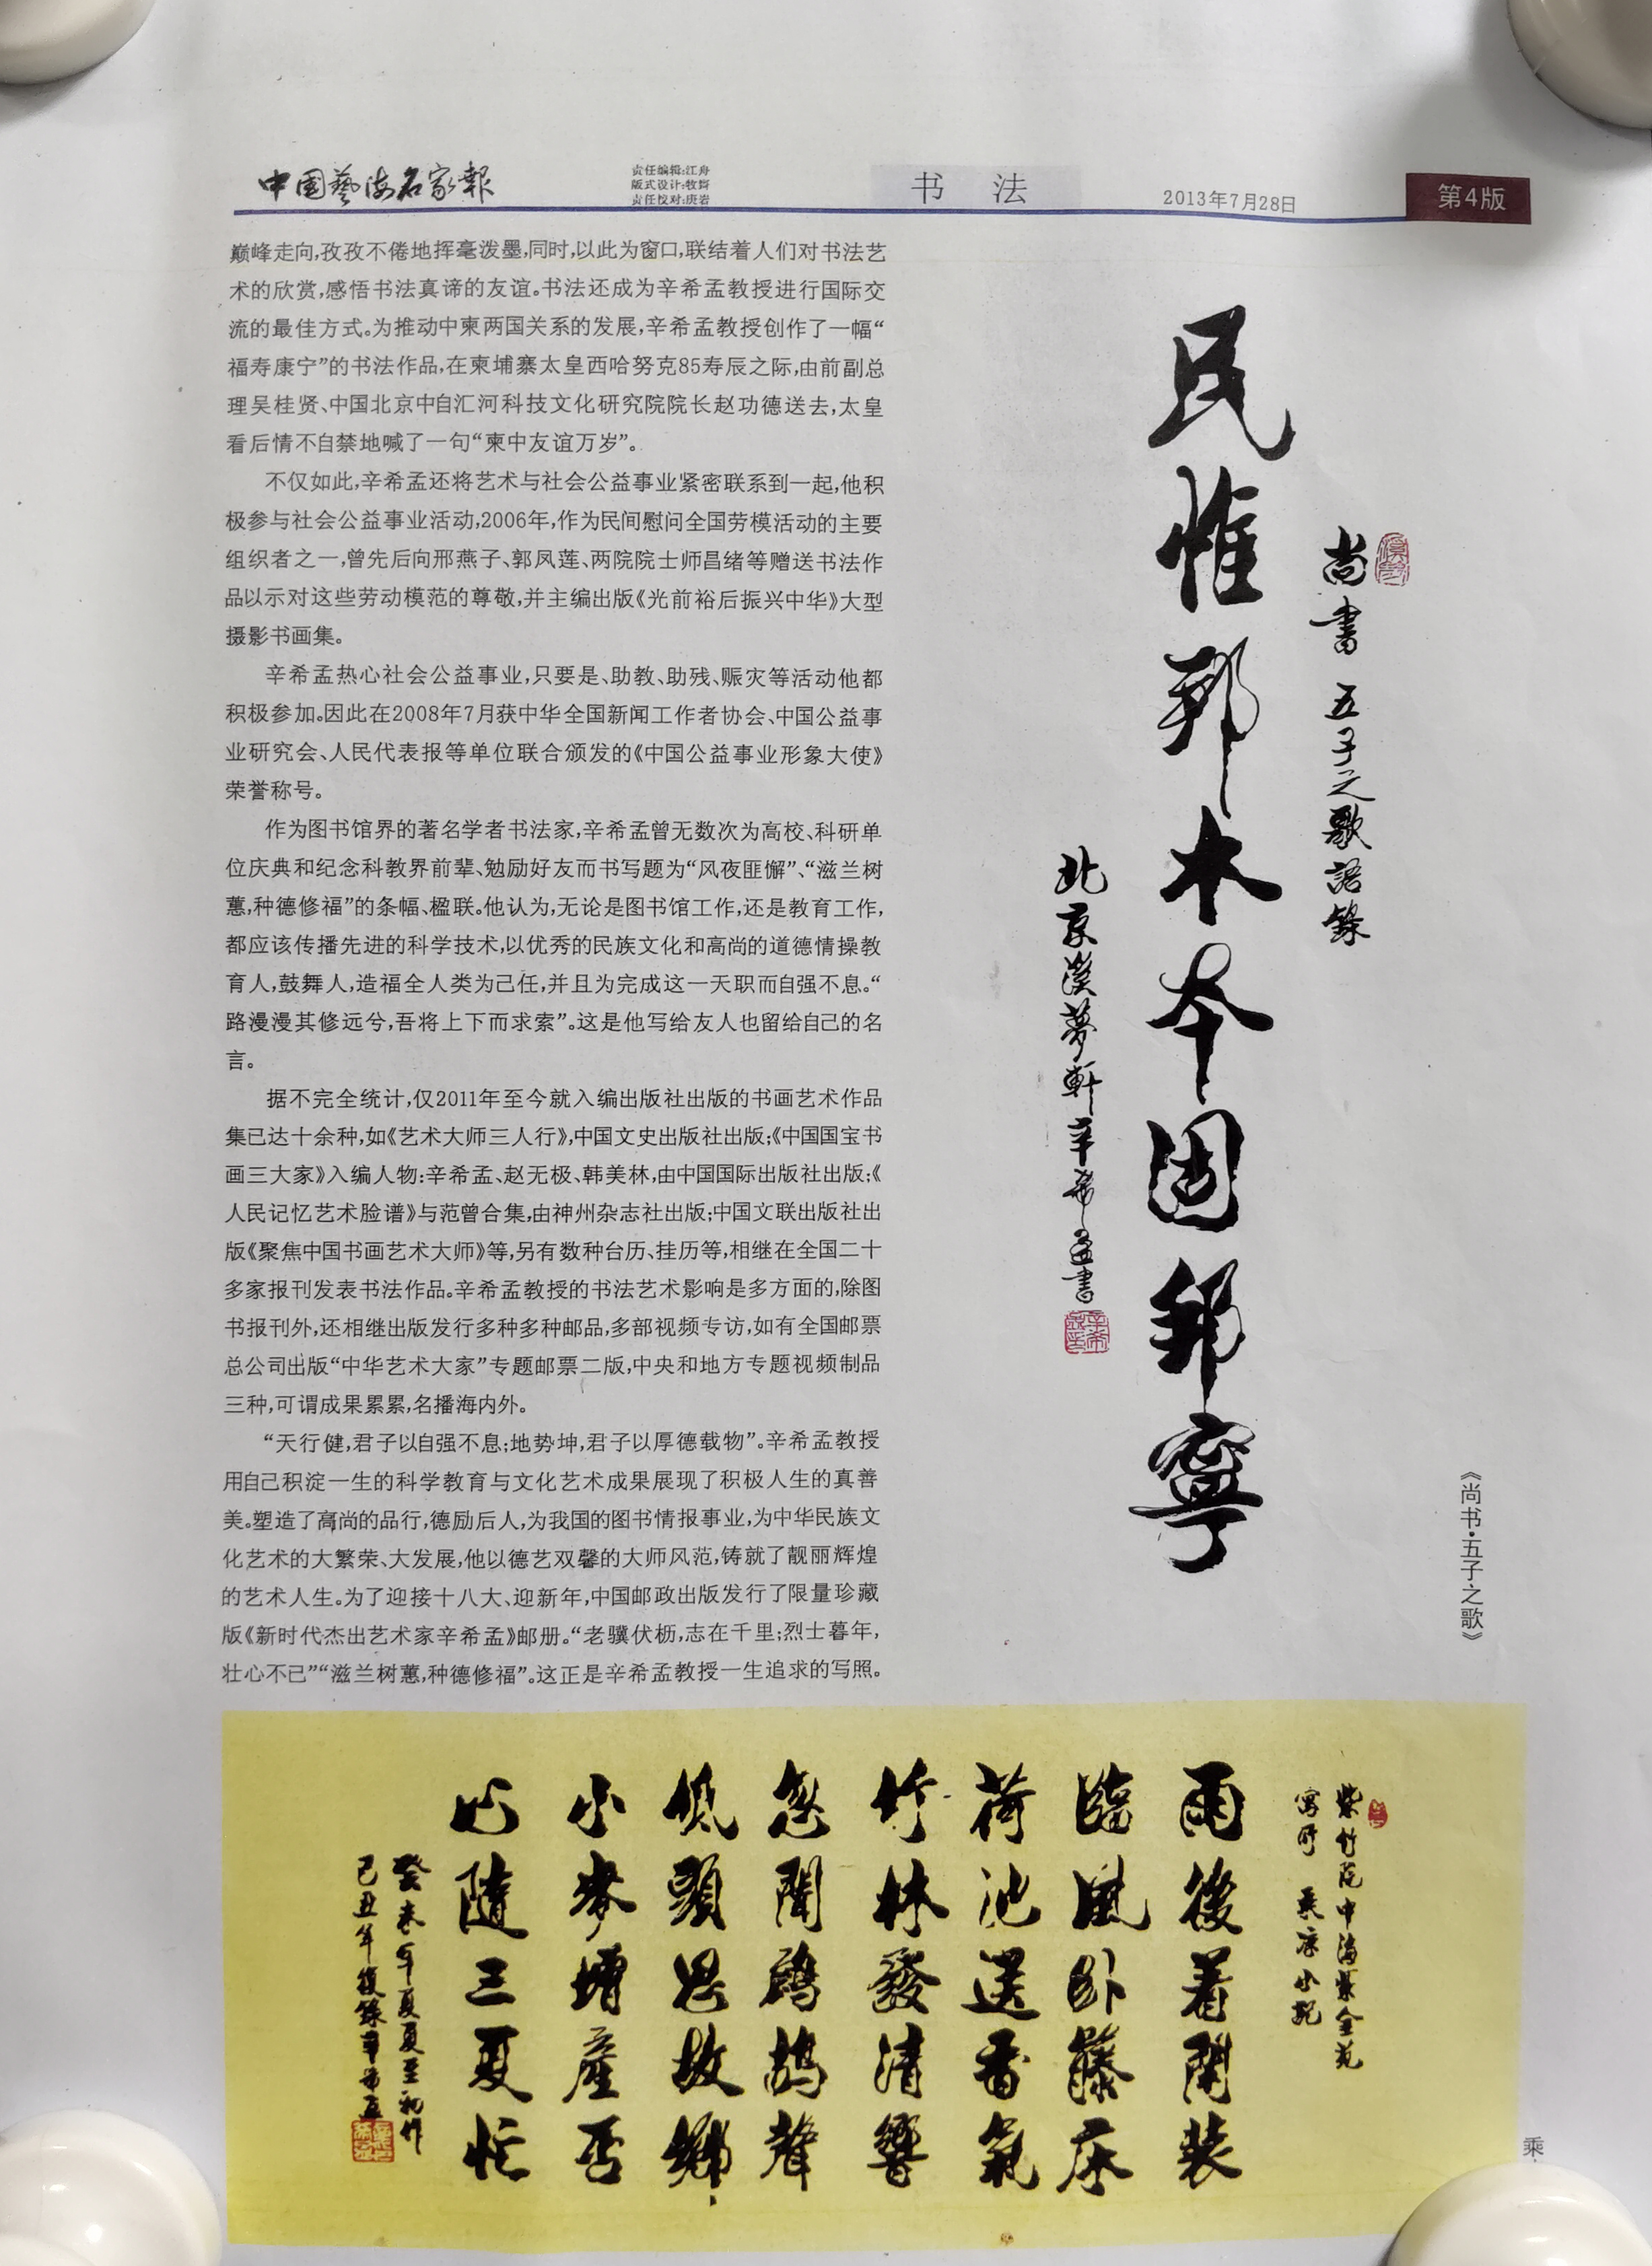 中国艺海名家报
责任编辑:江舟
版式设计:牧笛
责任校对:庚岩
书 法
2013年7月28日
第4版
巅峰走向,孜孜不倦地挥毫泼墨,同时,以此为窗口,联结着人们对书法艺
术的欣赏,感悟书法真谛的友谊。书法还成为辛希孟教授进行国际交
流的最佳方式。为推动中柬两国关系的发展,辛希孟教授创作了一幅“
福寿康宁”的书法作品,在柬埔寨太皇西哈努克85寿辰之际,由前副总
理吴桂贤、中国北京中自汇河科技文化研究院院长赵功德送去,太皇
看后情不自禁地喊了一句“柬中友谊万岁”。
不仅如此,辛希孟还将艺术与社会公益事业紧密联系到一起,他积
极参与社会公益事业活动,2006年,作为民间慰问全国劳模活动的主要
组织者之一,曾先后向邢燕子、郭凤莲、两院院士师昌绪等赠送书法作
品以示对这些劳动模范的尊敬,并主编出版《光前裕后振兴中华》大型
摄影书画集。
辛希孟热心社会公益事业,只要是、助教、助残、赈灾等活动他都
积极参加。因此在2008年7月获中华全国新闻工作者协会、中国公益事
业研究会、人民代表报等单位联合颁发的《中国公益事业形象大使》
荣誉称号。
作为图书馆界的著名学者书法家,辛希孟曾无数次为高校、科研单
位庆典和纪念科教界前辈、勉励好友而书写题为“风夜匪懈”、“滋兰树
蕙,种德修福”的条幅、楹联。他认为,无论是图书馆工作,还是教育工作,
都应该传播先进的科学技术,以优秀的民族文化和高尚的道德情操教
育人,鼓舞人,造福全人类为己任,并且为完成这一天职而自强不息。“
路漫漫其修远兮,吾将上下而求索”。这是他写给友人也留给自己的名
言。
据不完全统计,仅2011年至今就入编出版社出版的书画艺术作品
集已达十余种,如《艺术大师三人行》,中国文史出版社出版;《中国国宝书
画三大家》入编人物:辛希孟、赵无极、韩美林,由中国国际出版社出版;《
人民记忆艺术脸谱》与范曾合集,由神州杂志社出版;中国文联出版社出
版《聚焦中国书画艺术大师》等,另有数种台历、挂历等,相继在全国二十
多家报刊发表书法作品。辛希孟教授的书法艺术影响是多方面的,除图
书报刊外,还相继出版发行多种多种邮品,多部视频专访,如有全国邮票
总公司出版“中华艺术大家”专题邮票二版,中央和地方专题视频制品
三种,可谓成果累累,名播海内外。
“天行健,君子以自强不息;地势坤,君子以厚德载物”。辛希孟教授
用自己积淀一生的科学教育与文化艺术成果展现了积极人生的真善
美。塑造了高尚的品行,德励后人,为我国的图书情报事业,为中华民族文
化艺术的大繁荣、大发展,他以德艺双馨的大师风范,铸就了靓丽辉煌
的艺术人生。为了迎接十八大、迎新年,中国邮政出版发行了限量珍藏
版《新时代杰出艺术家辛希孟》邮册。“老骥伏枥,志在千里;烈士暮年,
壮心不已”“滋兰树蕙,种德修福”。这正是辛希孟教授一生追求的写照。
尚書 五子之歌語錄
民惟邦本本固邦寧
北京漢夢軒辛希孟書
《尚书·五子之歌》
紫竹院中海紫金苑
寓所 乘凉小記
雨後着閑装
臨風卧藤床
荷池送香氣
竹林發清響
忽聞鷓鴣聲
低頭思故鄉
小麥增產否
心隨三夏忙
癸未年夏夏至初作
己丑年後錄辛希孟
乘